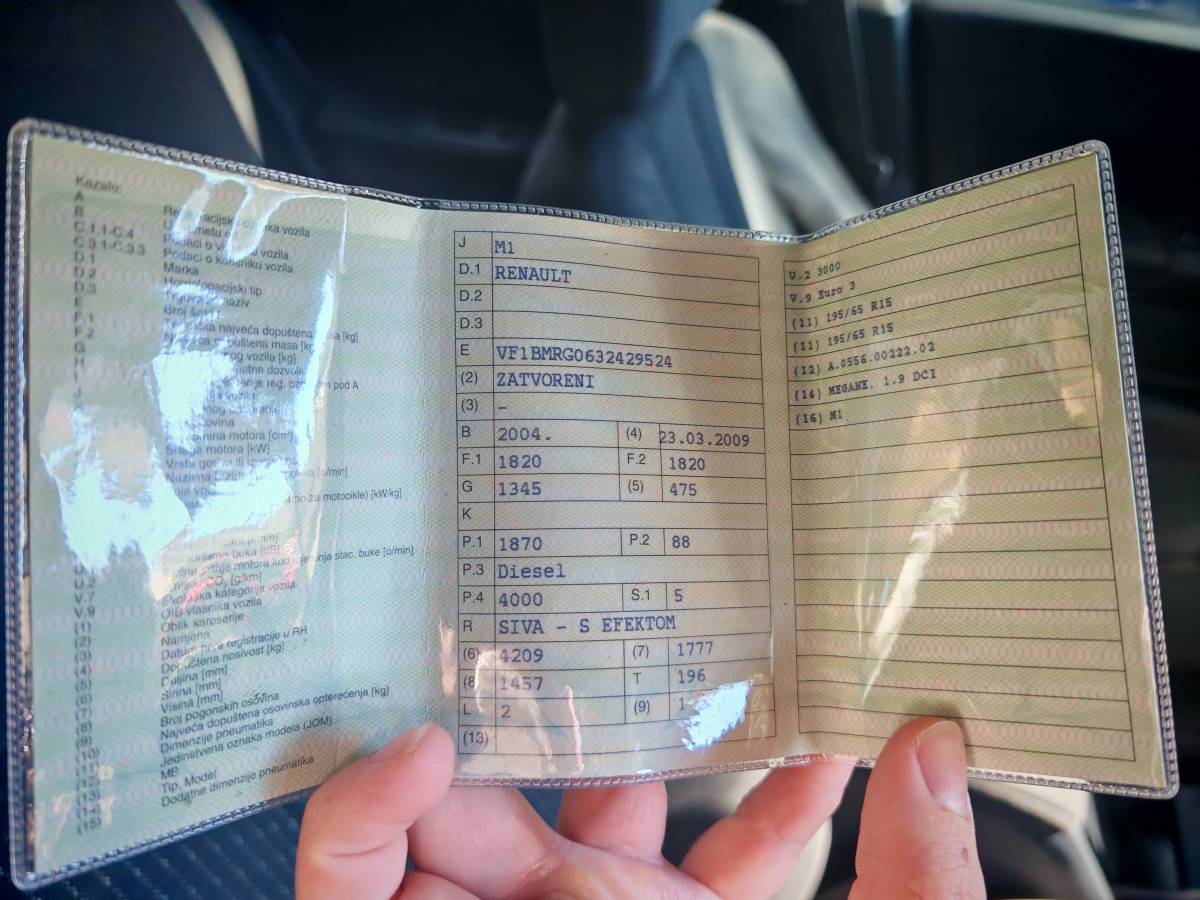 Kazalo:
A
B
C.1.1-C.4
C.3.1-C.3.3
D.1
D.2
D.3
E
F.1
F.2
G
H
J
U.2
V.7
V.9
(1)
(2)
(3)
(4)
(5)
(6)
(7)
(8)
(9)
(10)
(12)
(13)
(14)
(15)
vozila
Podaci o vozila
Podaci o korisniku vozila
Marka
Homologacijski tip
Broj
najveća dopuštena masa [kg]
dopuštena masa [kg]
vozila [kg]
reg. pod A
motora [cm³]
motora [kW]
Nazivna [o/min]
za motocikle) [kW/kg]
buka [dB]
motora kod stac. buke [o/min]
CO₂ [g/km]
Ekološka kategorija vozila
OIB vlasnika vozila
Oblik karoserije
Namjena
Datum prve registracije u RH
Dopuštena nosivost [kg]
Duljina [mm]
Širina [mm]
Visina [mm]
Broj pogonskih osovina
Najveća dopuštena osovinska opterećenja [kg]
Dimenzije pneumatika
Jedinstvena oznaka modela (JOM)
MB
Tip, Model
Dodatne dimenzije pneumatika
J M1
D.1 RENAULT
D.2
D.3
E VF1BMRG0632429524
(2) ZATVORENI
(3) –
B 2004. (4) 23.03.2009
F.1 1820 F.2 1820
G 1345 (5) 475
K
P.1 1870 P.2 88
P.3 Diesel
P.4 4000 S.1 5
R SIVA - S EFEKTOM
(6) 4209 (7) 1777
(8 1457 T 196
L 2 (9) 1
(13)
U.2 3000
V.9 Euro 3
(11) 195/65 R15
(11) 195/65 R15
(12) A.0556.00222.02
(14) MEGANE. 1.9 DCI
(16) M1